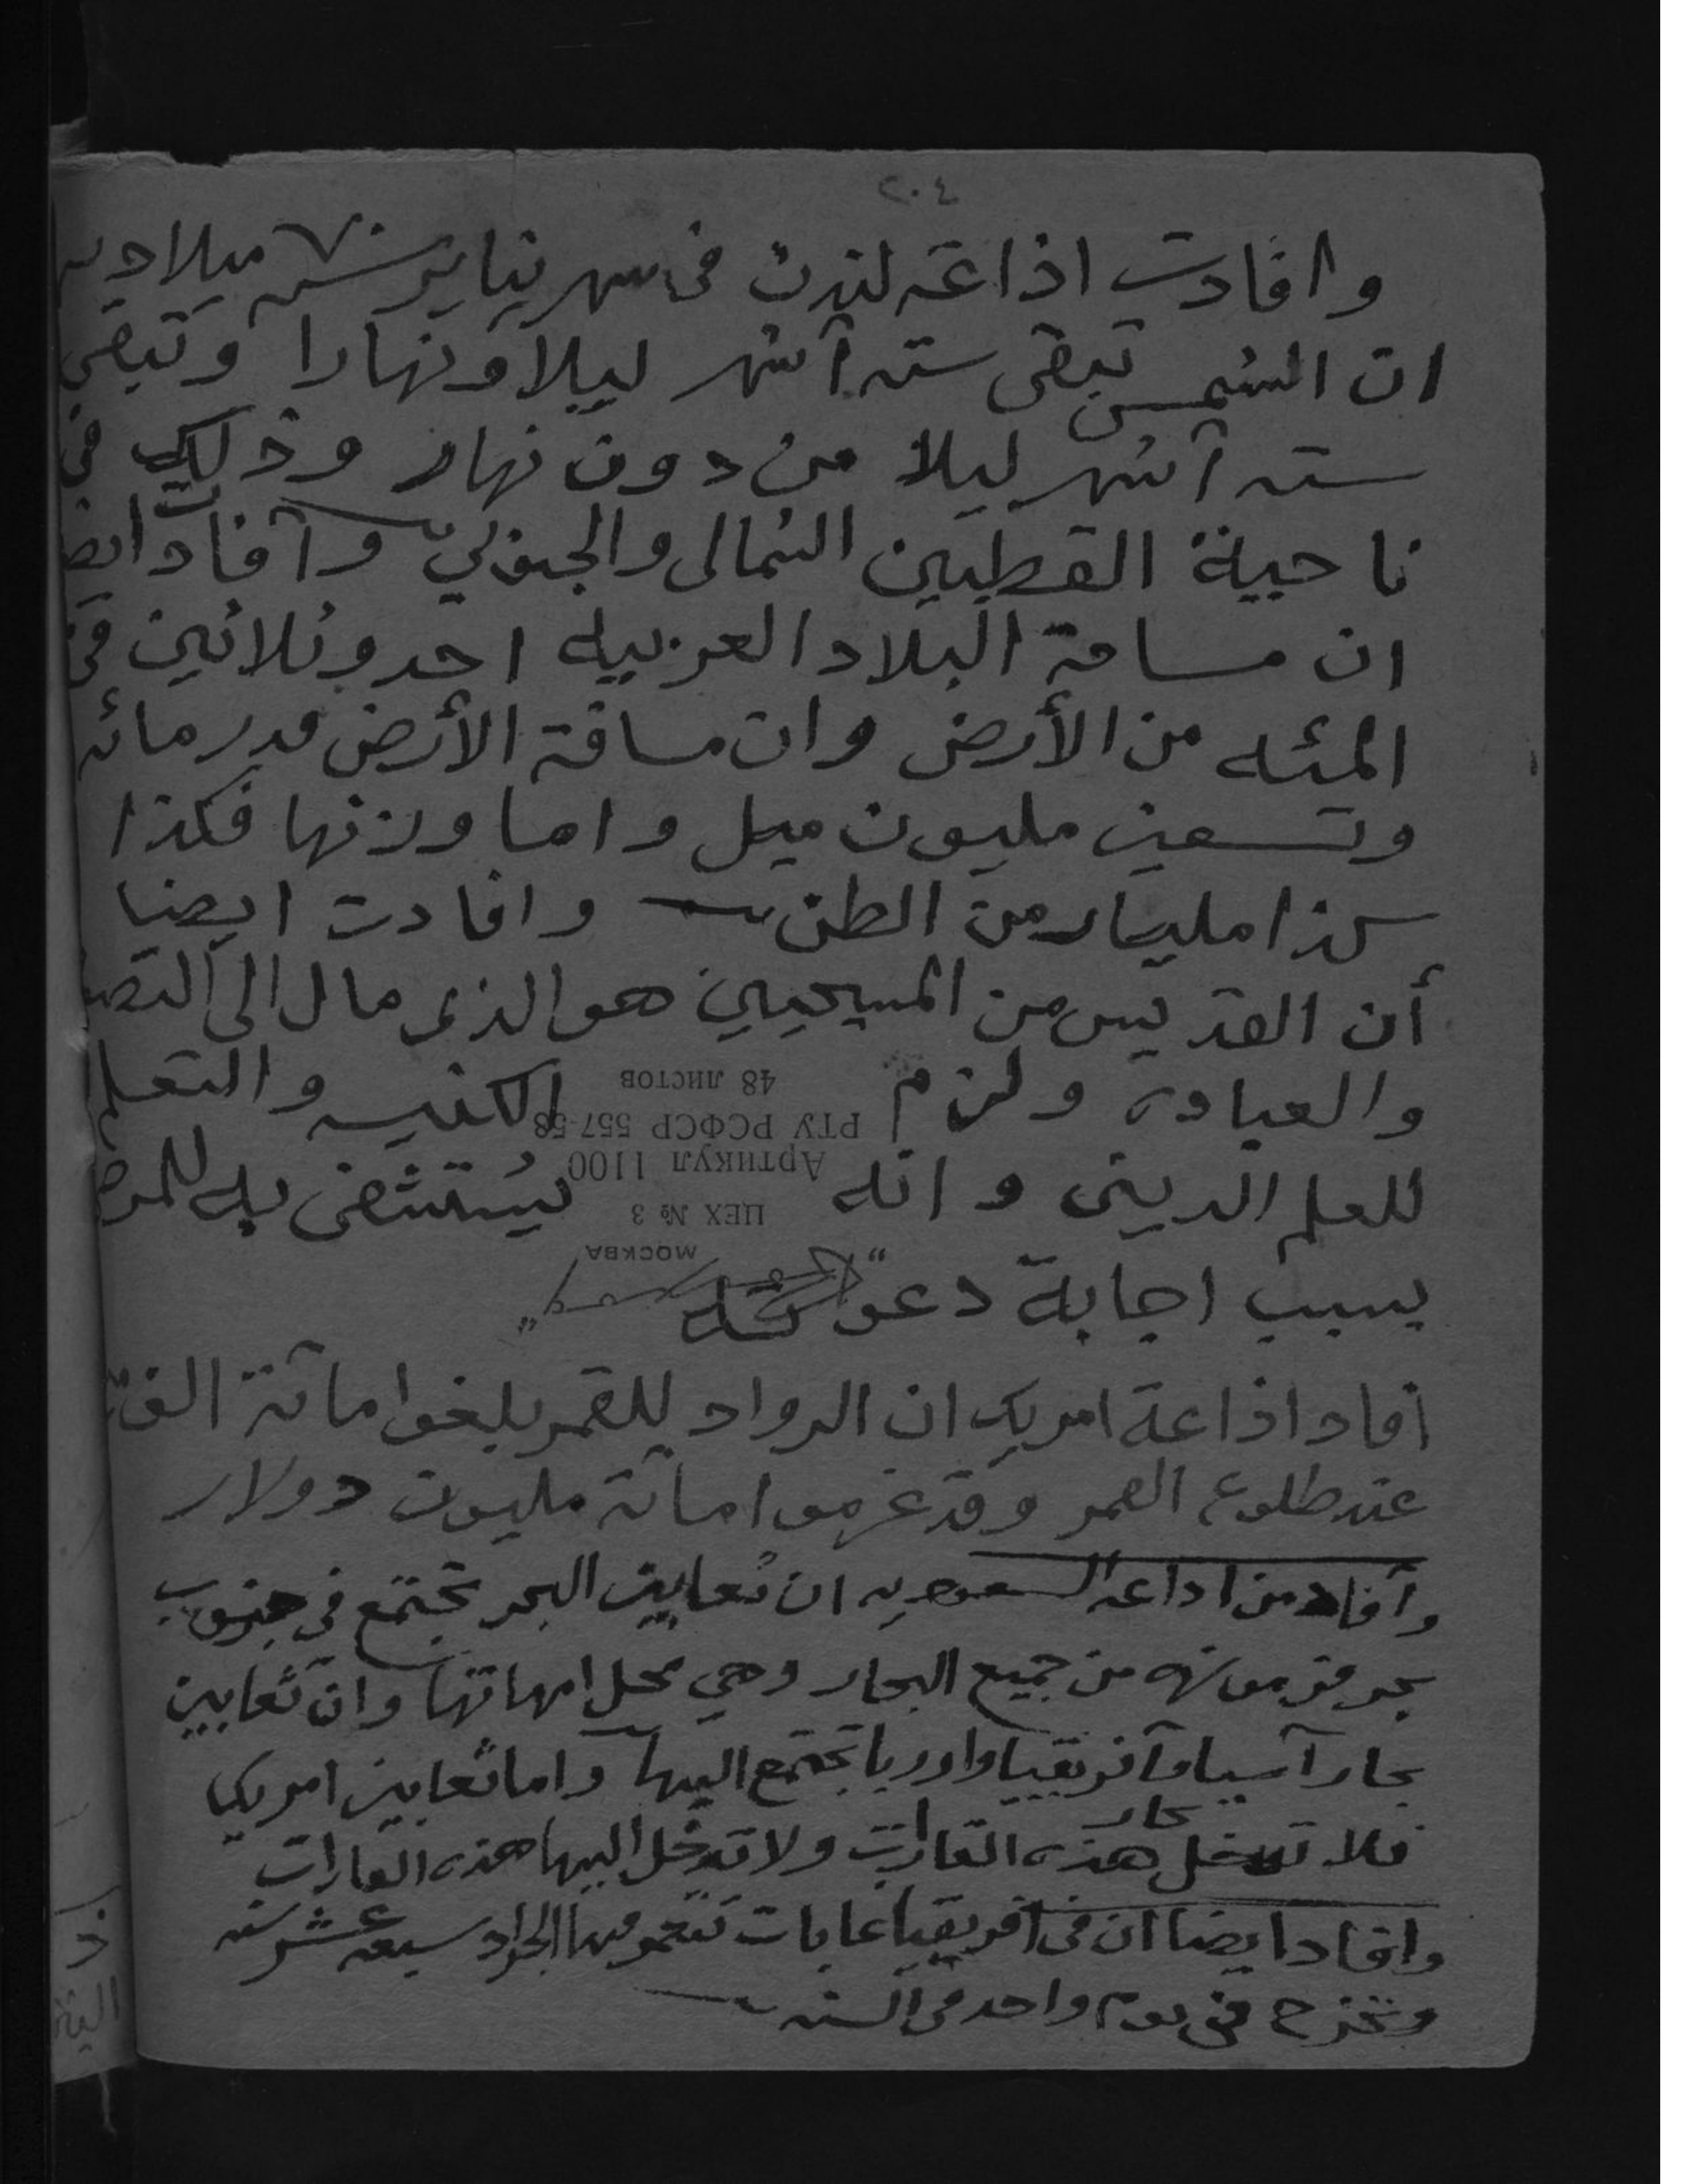 ٢٠٤
وافادت اذاعة لندن فى شهر يناير سنة ٧٠ ميلاديه
ان الشمس تبقى ستة آشهر ليلا ونهارا وتبقى
ستة آشهر ليلا من دون نهار وذلك فى
ناحية القطبين الشمالى والجنوبي وآفادت ايض
ان مسافة البلاد العربيه احد وثلاثين فى
المئه من الأرض وان مسافة الأرض قدر مائه
وتسعين مليون ميل واما وزنها فكذا
كذا مليار من الطن وافادت ايضا
أن القديس من المسيحيين هو الذى مال الى
والعبادة ولزم الكنيسه والتعلم
للعلم الدينى وانه يُستشفى به للمرض
بسبب اجابة دعوته
48 листов
РТУ РСФСР 557-58
Артикул 1100
ЦЕХ № 3
МОСКВА
آفاد اذاعة امريك ان الرواد للقمر بلغوا مائة الف
عند طلوع القمر وقد غرموا مائة مليون دولار
وآفاد من اذاعة السعوديه ان ثعابين البحر تجتمع فى جنوب
بحر من جميع البحار وهي محل امهاتها وان ثعابين
بحار آسيا وآفريقيا واوربا تجتمع اليها واما ثعابين امريكا
فلا تدخل بحار هذه القارات ولا تدخل اليها هذه القارات
وافاد ايضا ان فى آفريقيا غابات تنمو فيها الجراد سبعة عشر سنه
وتخرج فى يوم واحد فى السنه